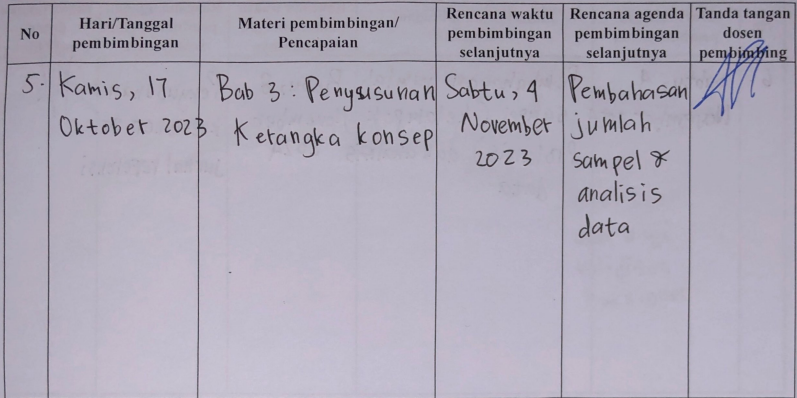 No
Hari/Tanggal
pembimbingan
Materi pembimbingan/
Pencapaian
Rencana waktu
pembimbingan
selanjutnya
Rencana agenda
pembimbingan
selanjutnya
Tanda tangan
dosen
pembimbing
5.
Kamis, 17
Oktober 2023
Bab 3: Penyusunan
Kerangka konsep
Sabtu, 4
November
2023
Pembahasan
jumlah
sampel &
analisis
data